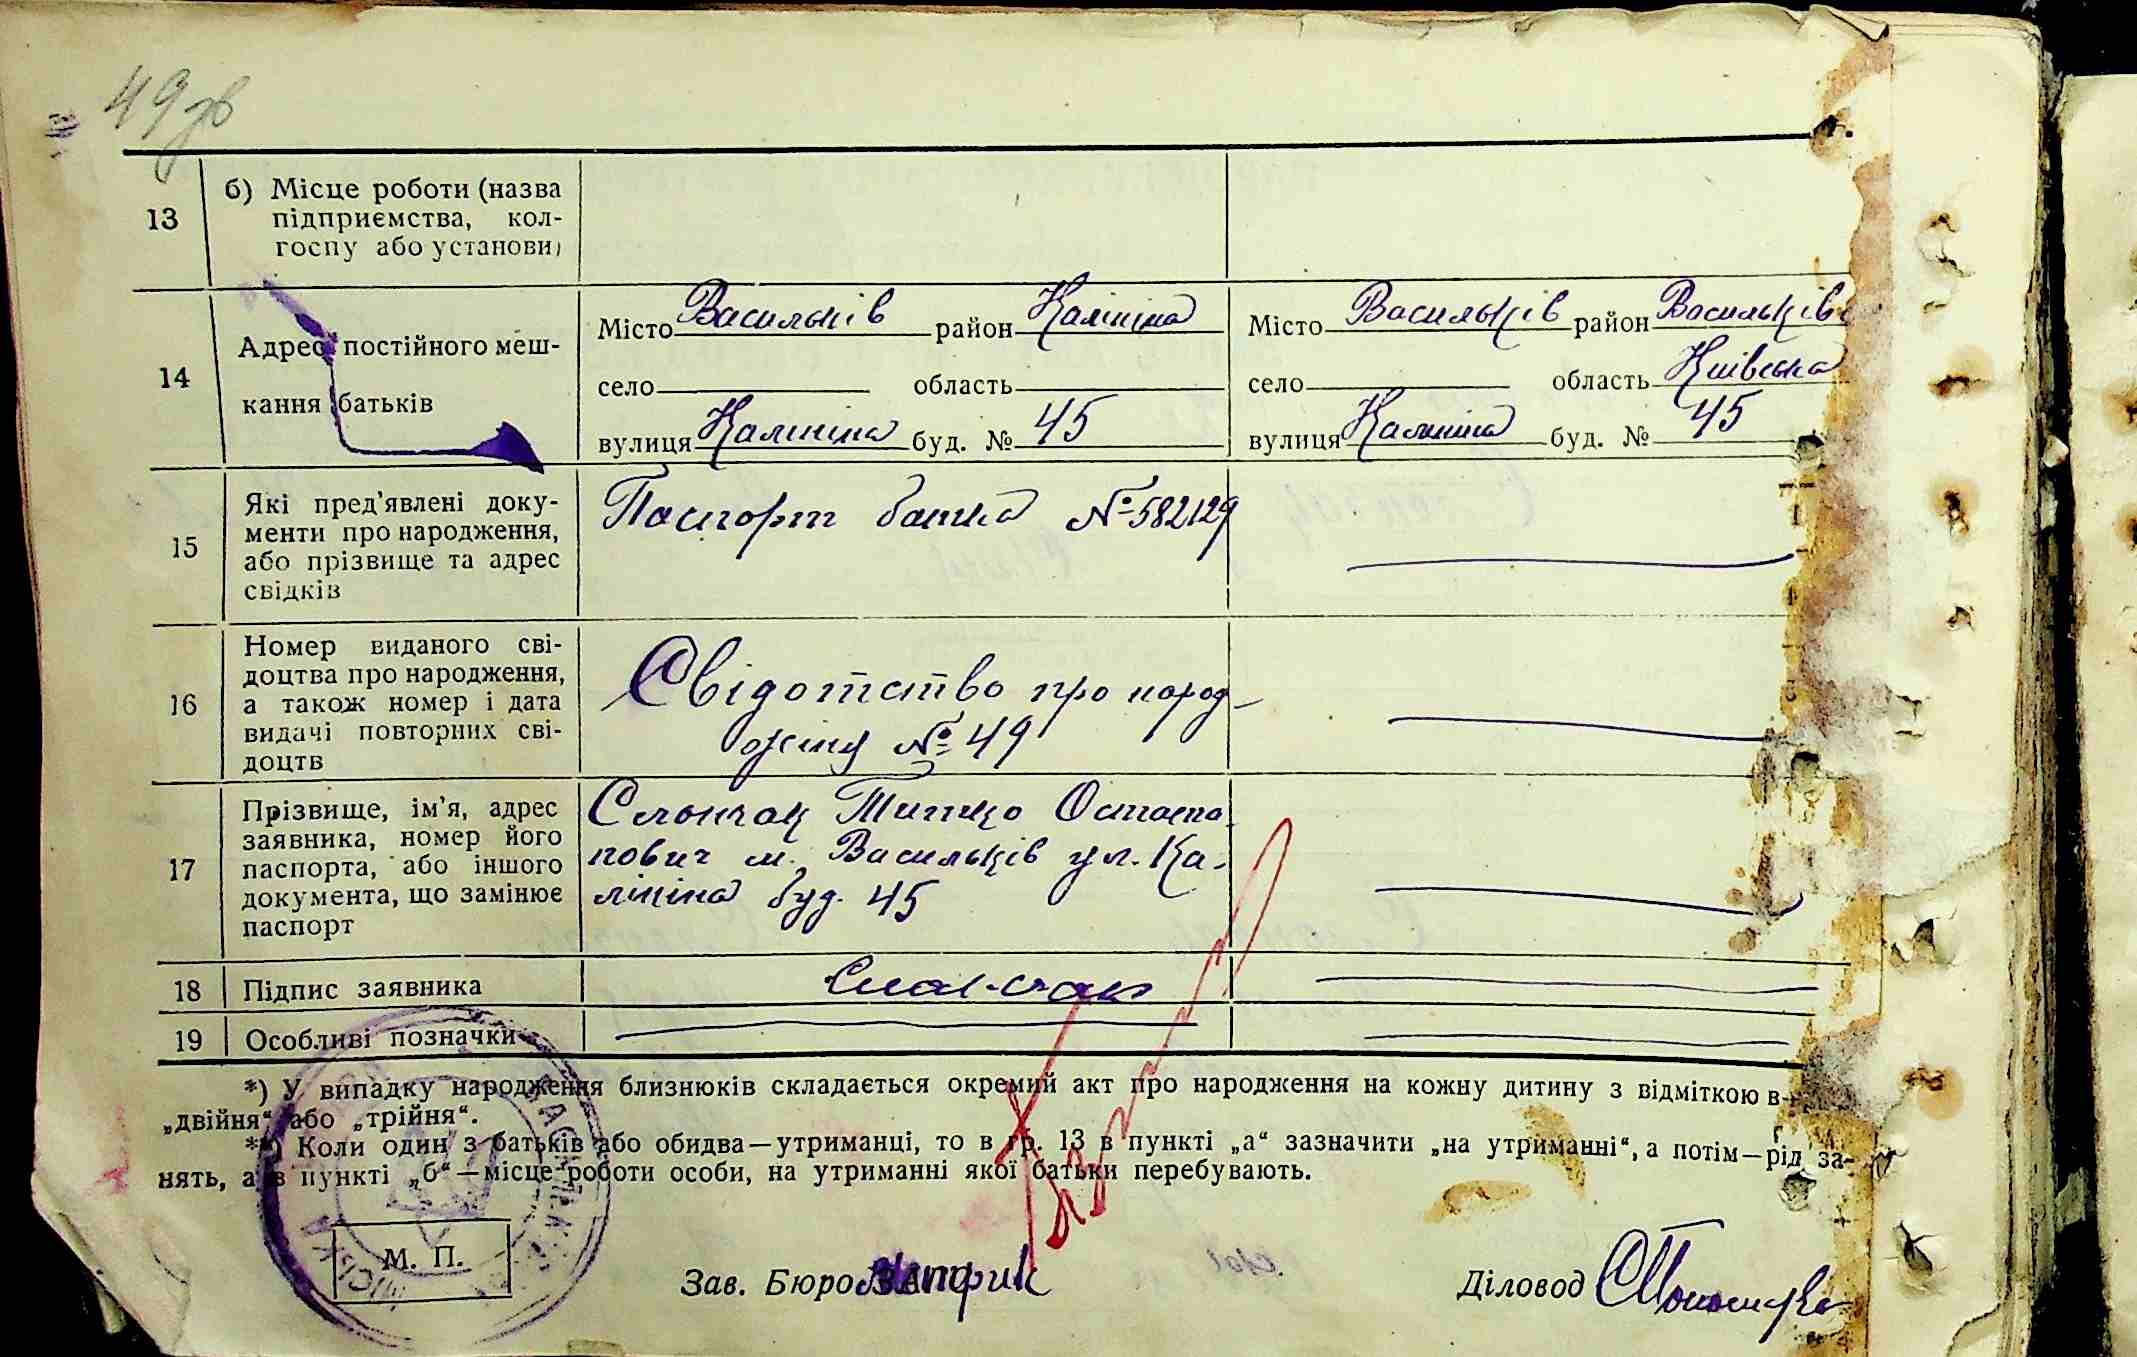 49 зв
13
б) Місце роботи (назва
підприємства, кол-
госпу або установи)
14
Адрес постійного меш-
кання батьків
Місто Васильків район Калініна
село область
вулиця Калініна буд. № 45
Місто Васильків район Васильків
село область Київська
вулиця Калініна буд. № 45
15
Які пред'явлені доку-
менти про народження,
або прізвище та адрес
свідків
Паспорт батька №582129
16
Номер виданого сві-
доцтва про народження,
а також номер і дата
видачі повторних сві-
доцтв
Свідотство про народ-
жіння № 49
17
Прізвище, ім'я, адрес
заявника, номер його
паспорта, або іншого
документа, що замінює
паспорт
Титко Остапа-
пович м. Васильків ул. Ка-
лініна буд. 45
18
Підпис заявника
19
Особливі позначки
*) У випадку народження близнюків складається окремий акт про народження на кожну дитину з відміткою в
„двійня" або „трійня".
**) Коли один з батьків або обидва—утриманці, то в гр. 13 в пункті „а" зазначити „на утриманні", а потім—рід за-
нять, а в пункті „б"—місце роботи особи, на утриманні якої батьки перебувають.
М. П.
Зав. Бюро ЗАГС
Діловод